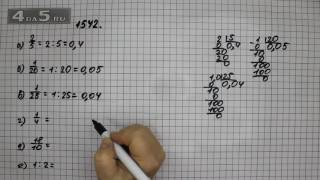 4DA5.RU
1542.
а) 2/5 = 2:5=0,4
б) 1/20 = 1:20=0,05
в) 1/25 = 1:25=0,04
г) 1/4 =
д) 18/10 =
е) 1:2=
2 |5
0 0,4
20
20
0
1 |20
0 0,05
10
0
100
100
0
1,0 |25
0 0,04
10
0
100
100
0